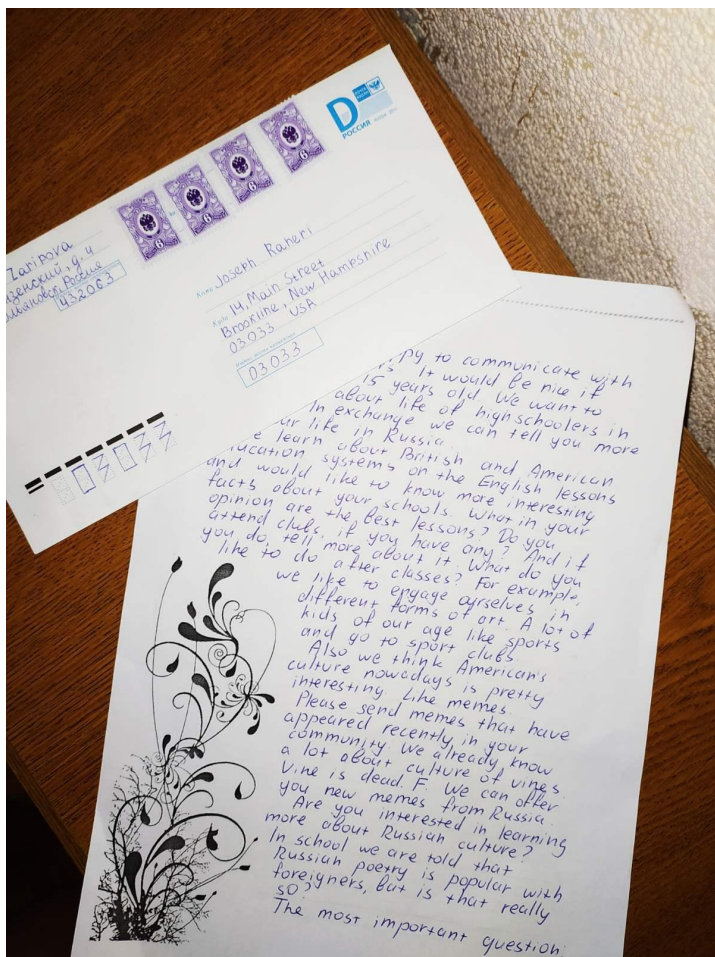 D
РОССИЯ
6
6
6
6
Zaripova
, д. 4
Россия
432063
Кому Joseph Raheri
Куда 14, Main Street
Brookline, New Hampshire
03033 USA
03033
py to communicate with
It would be nice if
15 years old. We want to
about life of highschoolers in
In exchange we can tell you more
ur life in Russia.
e learn about British and American
ducation systems on the English lessons
and would like to know more interesting
facts about your schools. What in your
opinion are the best lessons? Do you
attend clubs, if you have any? And if
you do, tell more about it. What do you
like to do after classes? For example,
we like to engage ourselves in
different forms of art. A lot of
kids of our age like sports
and go to sport clubs.
Also we think American's
culture nowadays is pretty
interesting. Like memes.
Please send memes that have
appeared recently in your
community. We already know
a lot about culture of vines.
Vine is dead. F. We can offer
you new memes from Russia.
Are you interested in learning
more about Russian culture?
In school we are told that
Russian poetry is popular with
foreigners, but is that really
so?
The most important question: